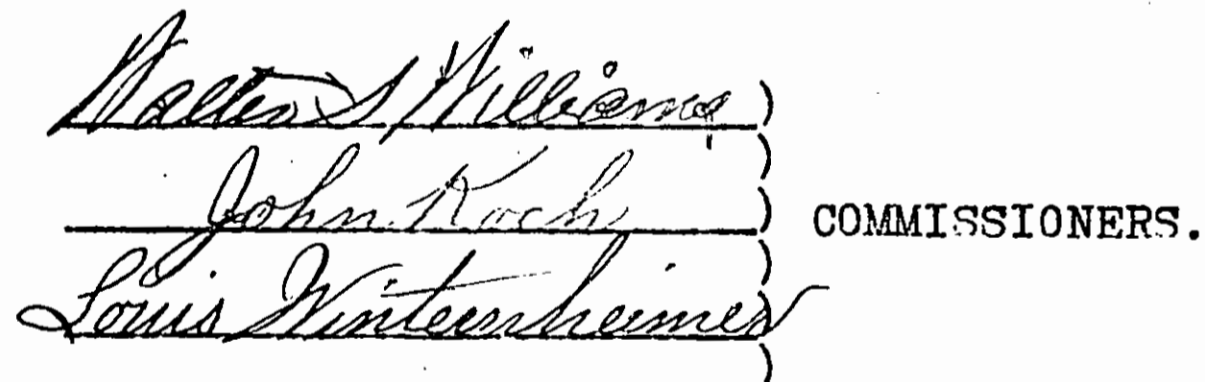 Walter S Williams )
)
John Koch ) COMMISSIONERS.
)
Louis Winternheimer )
)